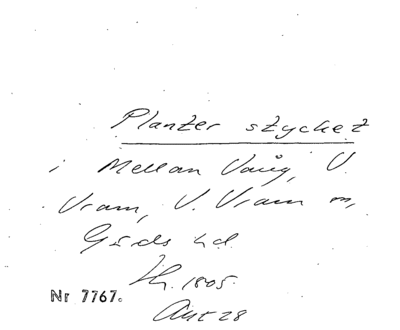 Planter stycket
i Mellan Vång, V.
Vram, V. Vram sn,
Gärds hd.
Nr 7767.
Akt 28